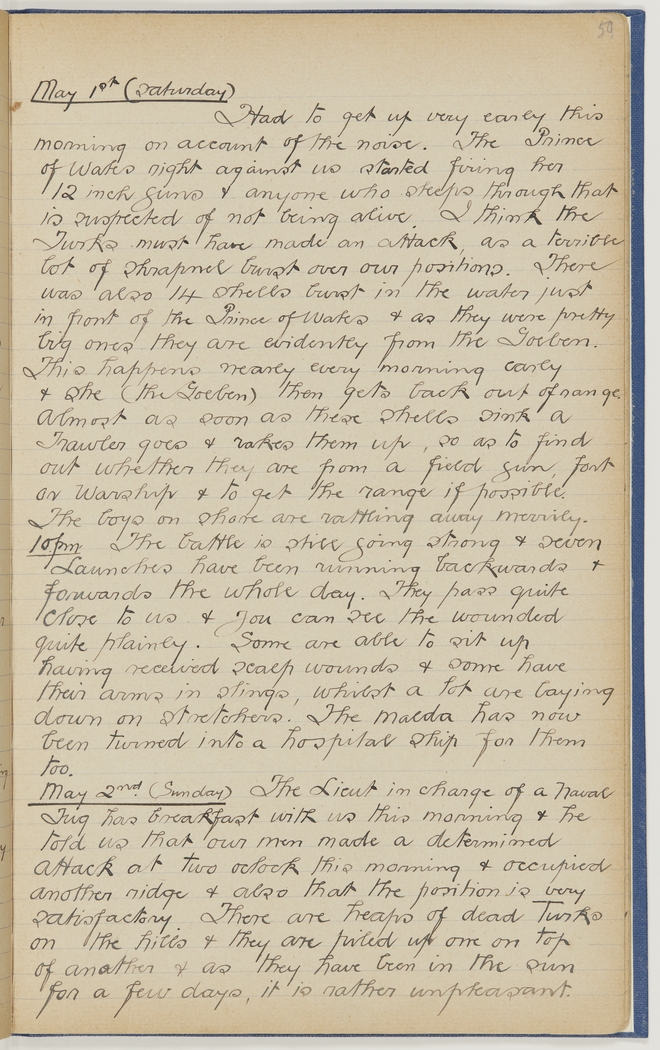 59
May 1st (Saturday)
Had to get up very early this
morning on account of the noise. The Prince
of Wales right against us started firing her
12 inch guns & anyone who sleeps through that
is suspected of not being alive. I think the
Turks must have made an attack, as a terrible
lot of shrapnel burst over our positions. There
was also 14 shells burst in the water just
in front of the Prince of Wales & as they were pretty
big ones they are evidently from the Goeben.
This happens nearly every morning early
& she (the Goeben) then gets back out of range.
Almost as soon as these shells sink a
Trawler goes & rakes them up, so as to find
out whether they are from a field gun, fort
or Warship & to get the range if possible.
The boys on shore are rattling away merrily.
10pm The battle is still going strong & seven
Launches have been running backwards &
forwards the whole day. They pass quite
close to us & you can see the wounded
quite plainly. Some are able to sit up
having received scalp wounds & some have
their arms in slings, whilst a lot are laying
down on stretchers. The Malda has now
been turned into a hospital ship for them
too.
May 2nd (Sunday) The Lieut in charge of a Naval
Tug has breakfast with us this morning & he
told us that our men made a determined
attack at two oclock this morning & occupied
another ridge & also that the position is very
satisfactory There are heaps of dead Turks
on the hills & they are piled up one on top
of another & as they have been in the sun
for a few days, it is rather unpleasant.